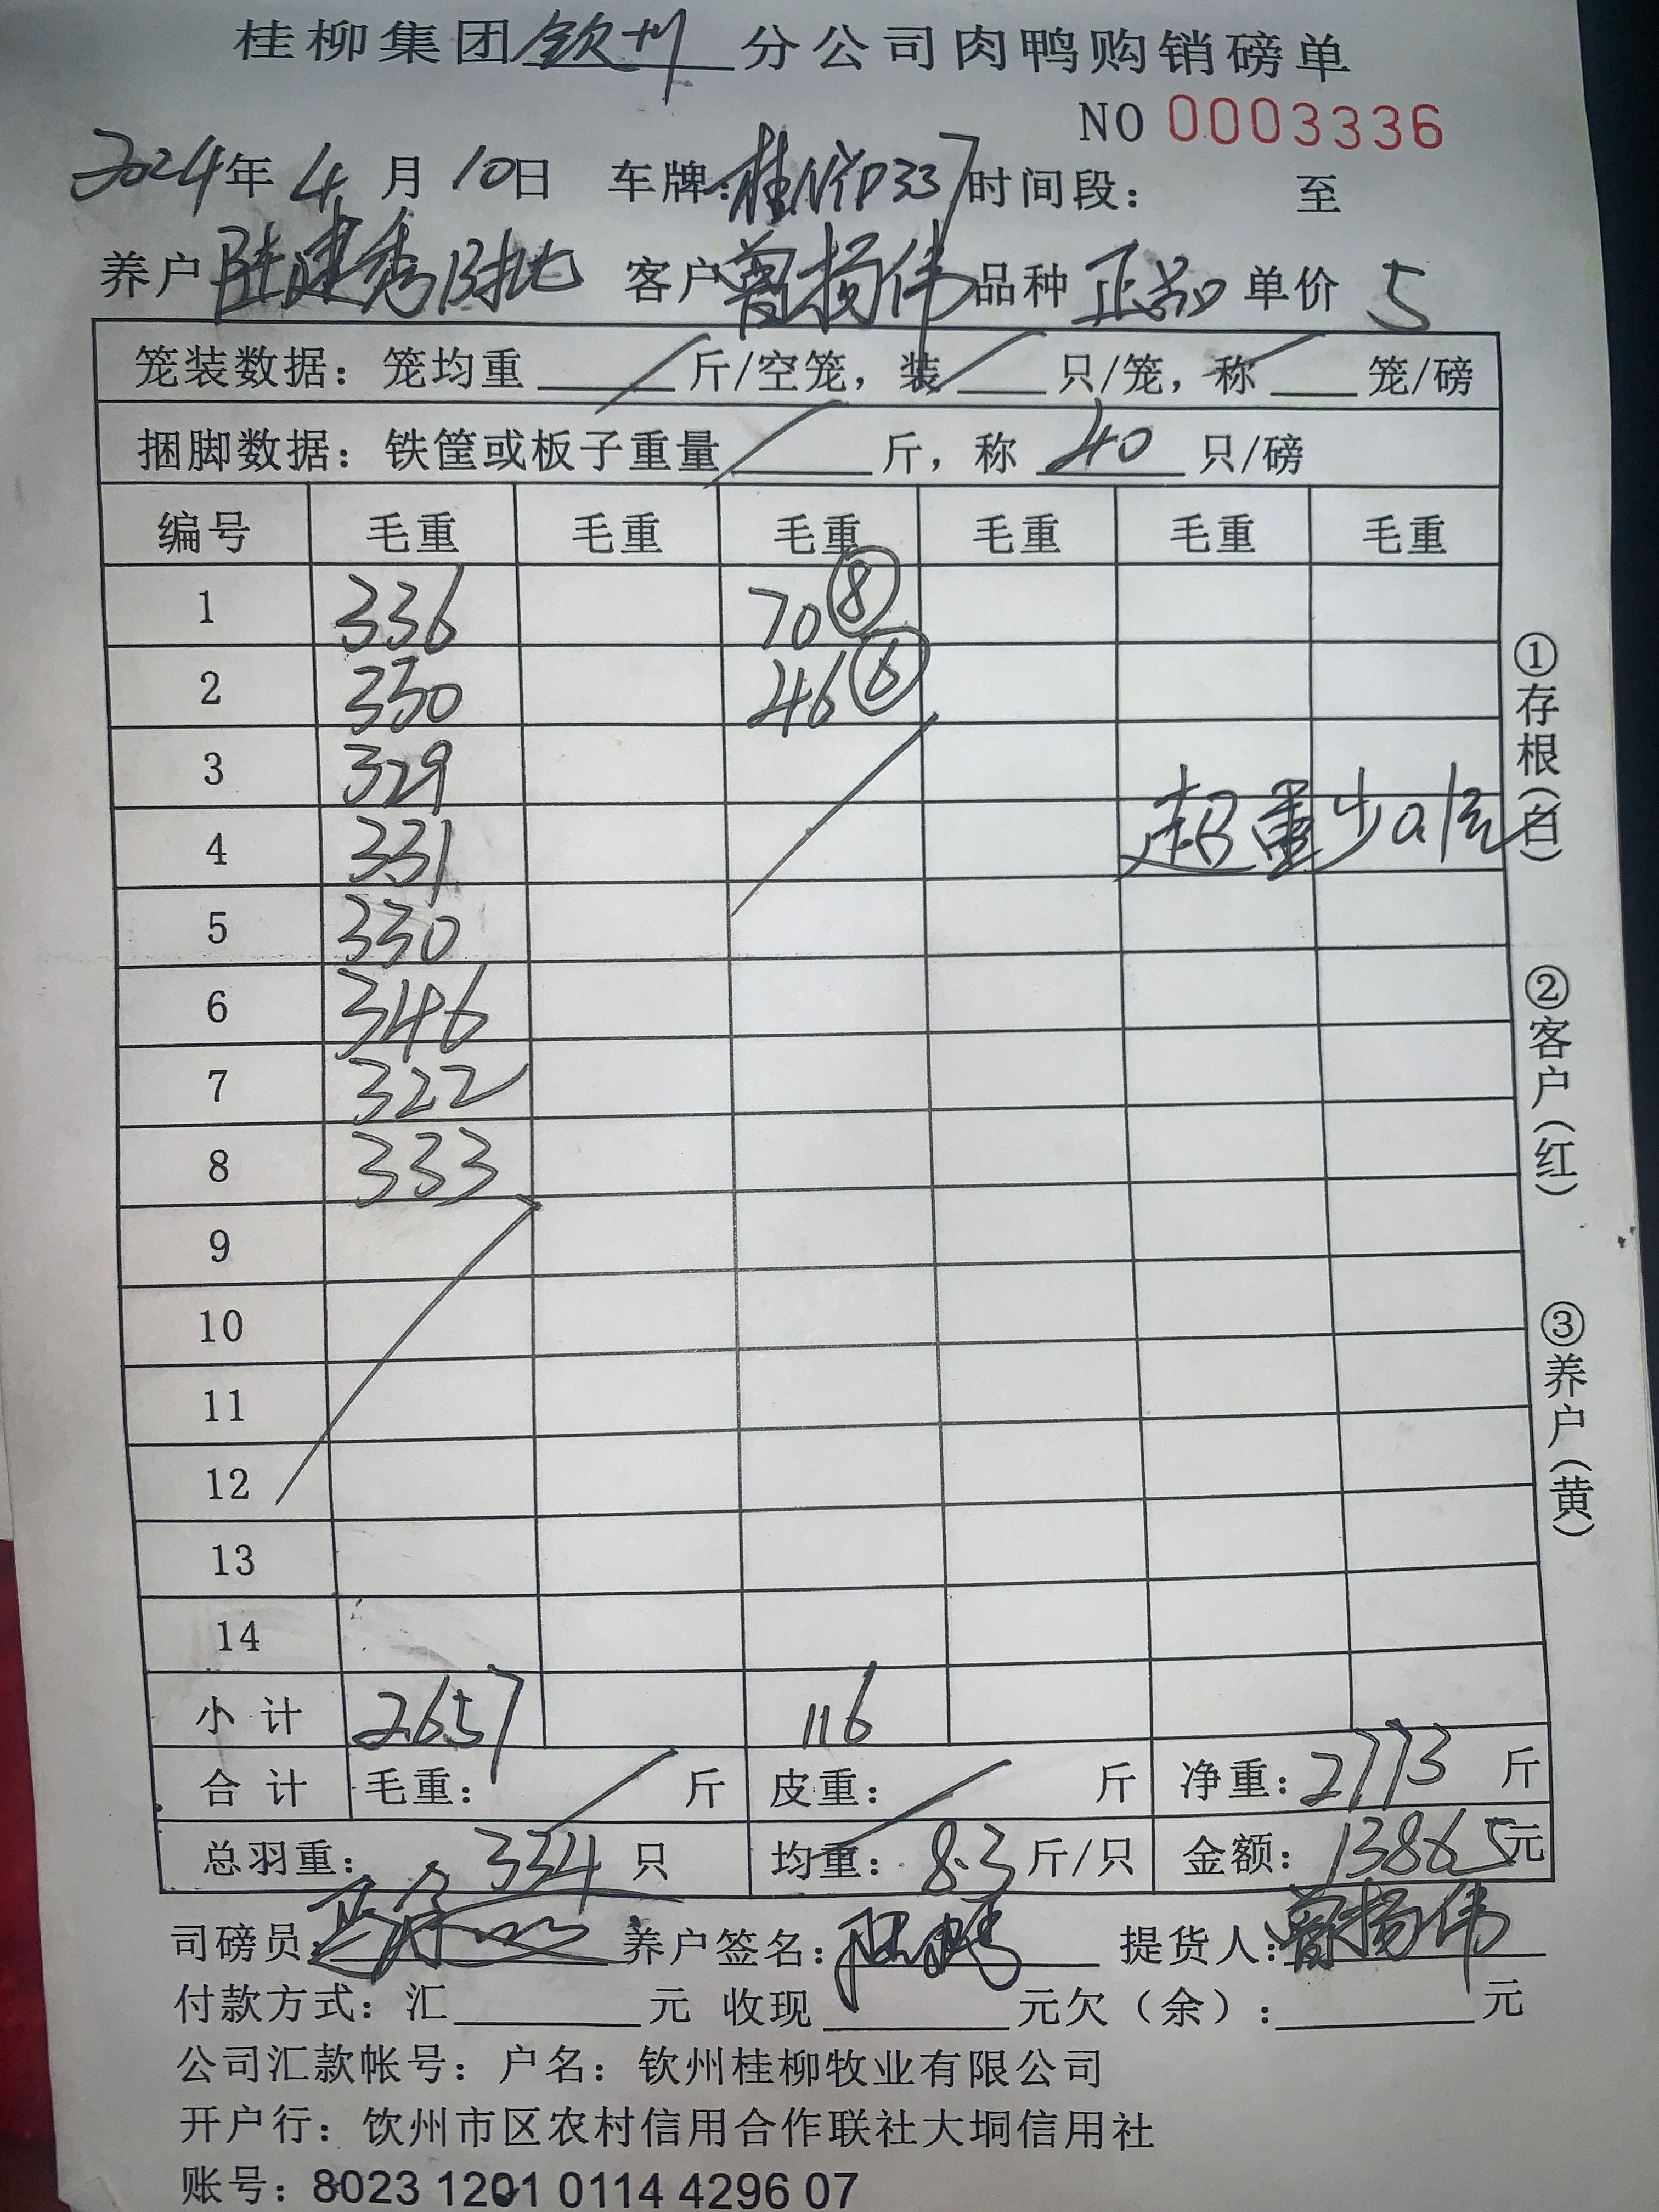 桂柳集团钦州分公司肉鸭购销磅单
NO 0003336
2024年4月10日 车牌:桂NYD337时间段: 至
养户陆建秀B批 客户曾扬伟品种正品单价5
笼装数据:笼均重 斤/空笼,装 只/笼,称 笼/磅
捆脚数据:铁筐或板子重量 斤,称 40 只/磅
编号 毛重 毛重 毛重 毛重 毛重 毛重
1 336 70⑧
2 330 46⑥
3 329
4 331 超重少0.1元
5 330
6 346
7 322
8 333
9
10
11
12
13
14
小计 2657 116
合计 毛重: 斤 皮重: 斤 净重:2773斤
总羽重:334只 均重:8.3斤/只 金额:13865元
司磅员: 养户签名: 提货人:曾扬伟
付款方式:汇 元 收现 元欠(余): 元
公司汇款帐号:户名:钦州桂柳牧业有限公司
开户行:钦州市区农村信用合作联社大垌信用社
账号:8023 1201 0114 4296 07
①存根(白)
②客户(红)
③养户(黄)